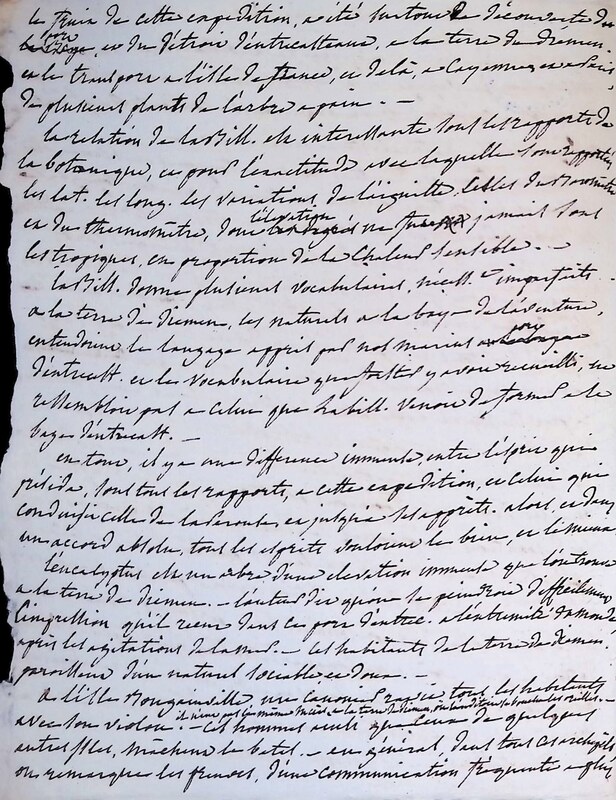 le fruit de cette expedition, a été surtout la découverte du
port et du détroit d'entrecasteaux, a la terre de diemen.
et le transport a l'isle de france, et de là, a Cayenne, et a Paris
de plusieurs plants de l'arbre a pain. —
la relation de la Bill. est interessante sous les rapports de
la botanique, et pour l'exactitude avec laquelle sont rapportés
les lat. les long. les variations de l'aiguille. celles du Barometre
et du thermomètre, dont l'élévation ne jamais sous
les tropiques, en proportion de la Chaleur sensible. —
la Bill. donne plusieurs vocabulaires, imparfaits. —
a la terre de diemen, les naturels a la baye de l'aventure,
entendirent le langage appris par nos marins au port
d'entrecast. et le vocabulaire que y avoit recueilli, ne
ressembloit pas a celui que la bill. venoit de former a la
baye d'entrecast. —
en tout, il y a une différence immense, entre l'esprit qui
présida, sous tous les rapports, a cette expedition, et celui qui
conduisit celle de la Perouse, et jusque ses apprêts. alors, et dans
un accord absolu, tous les esprits vouloient le bien, et le mieux
l'eucalyptus est un arbre d'une elevation immense que l'on trouve
a la terre de diemen. — l'auteur dit qu'on se peindroit difficilement
l'impression qu'il recut dans ce port d'entrec. a l'extremité du monde
après les agitations de la mer. — les habitants de la terre de diemen.
paroissent d'un naturel sociable et doux. —
a l'isle Bougainville, un canonier ravit tous les habitants
avec son violon. il n'eut pas le même succès a la terre de diemen, on se boucha les oreilles. —
Ces hommes ainsi que ceux de quelques
autres isles, machent le betel. — en général, dans tous ces archipels
on remarque les preuves, d'une communication fréquente et plus